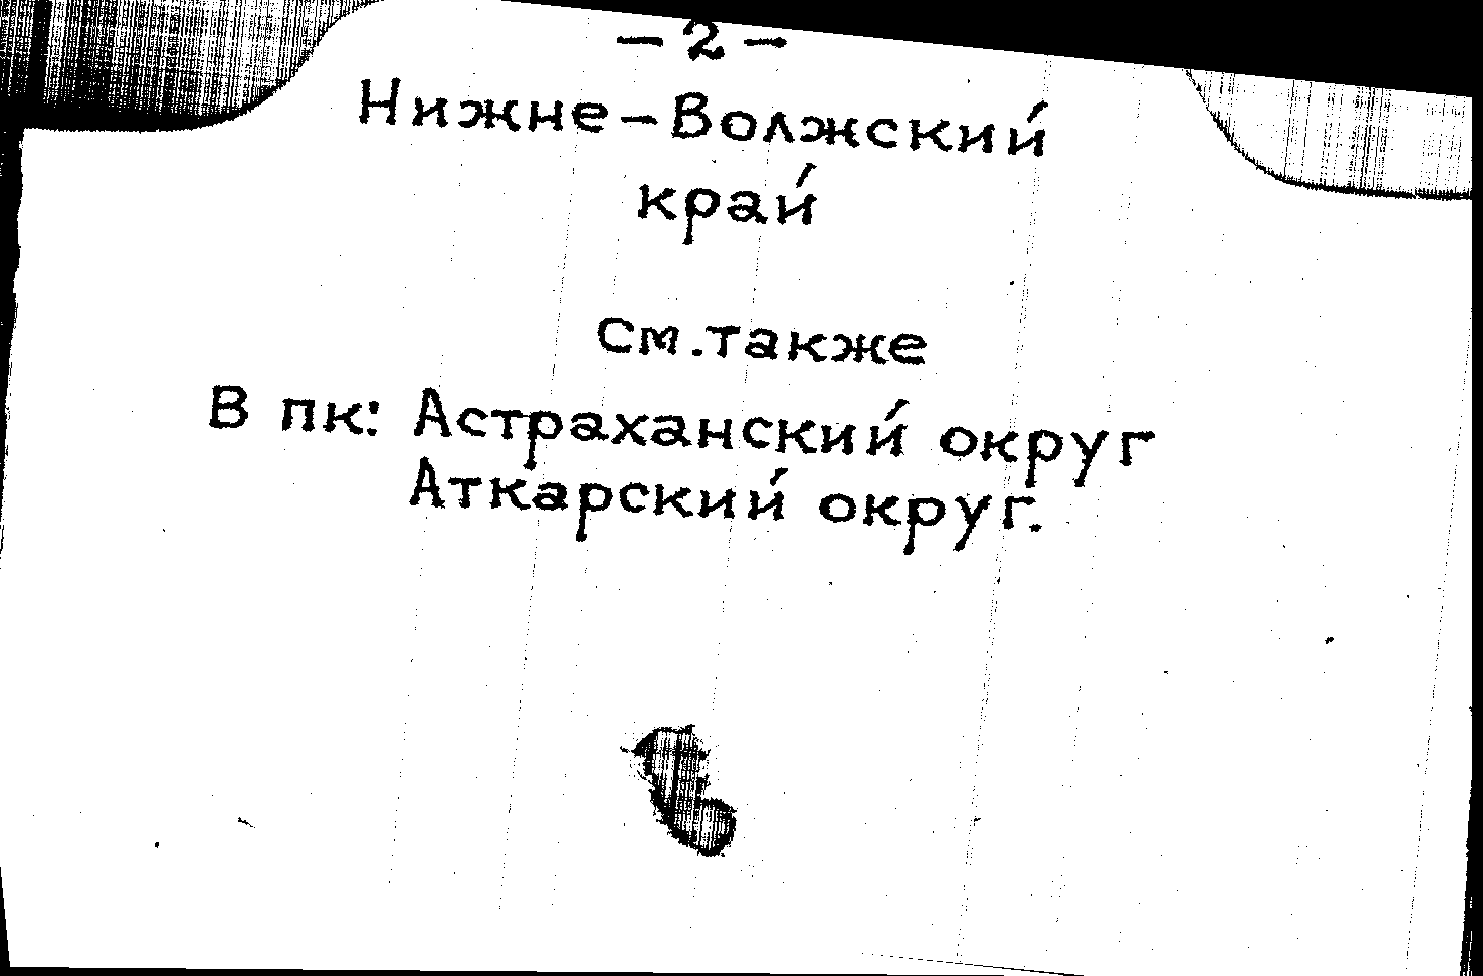 - 2 -
Нижне-Волжский
край
см. также
В пк: Астраханский округ
Аткарский округ.